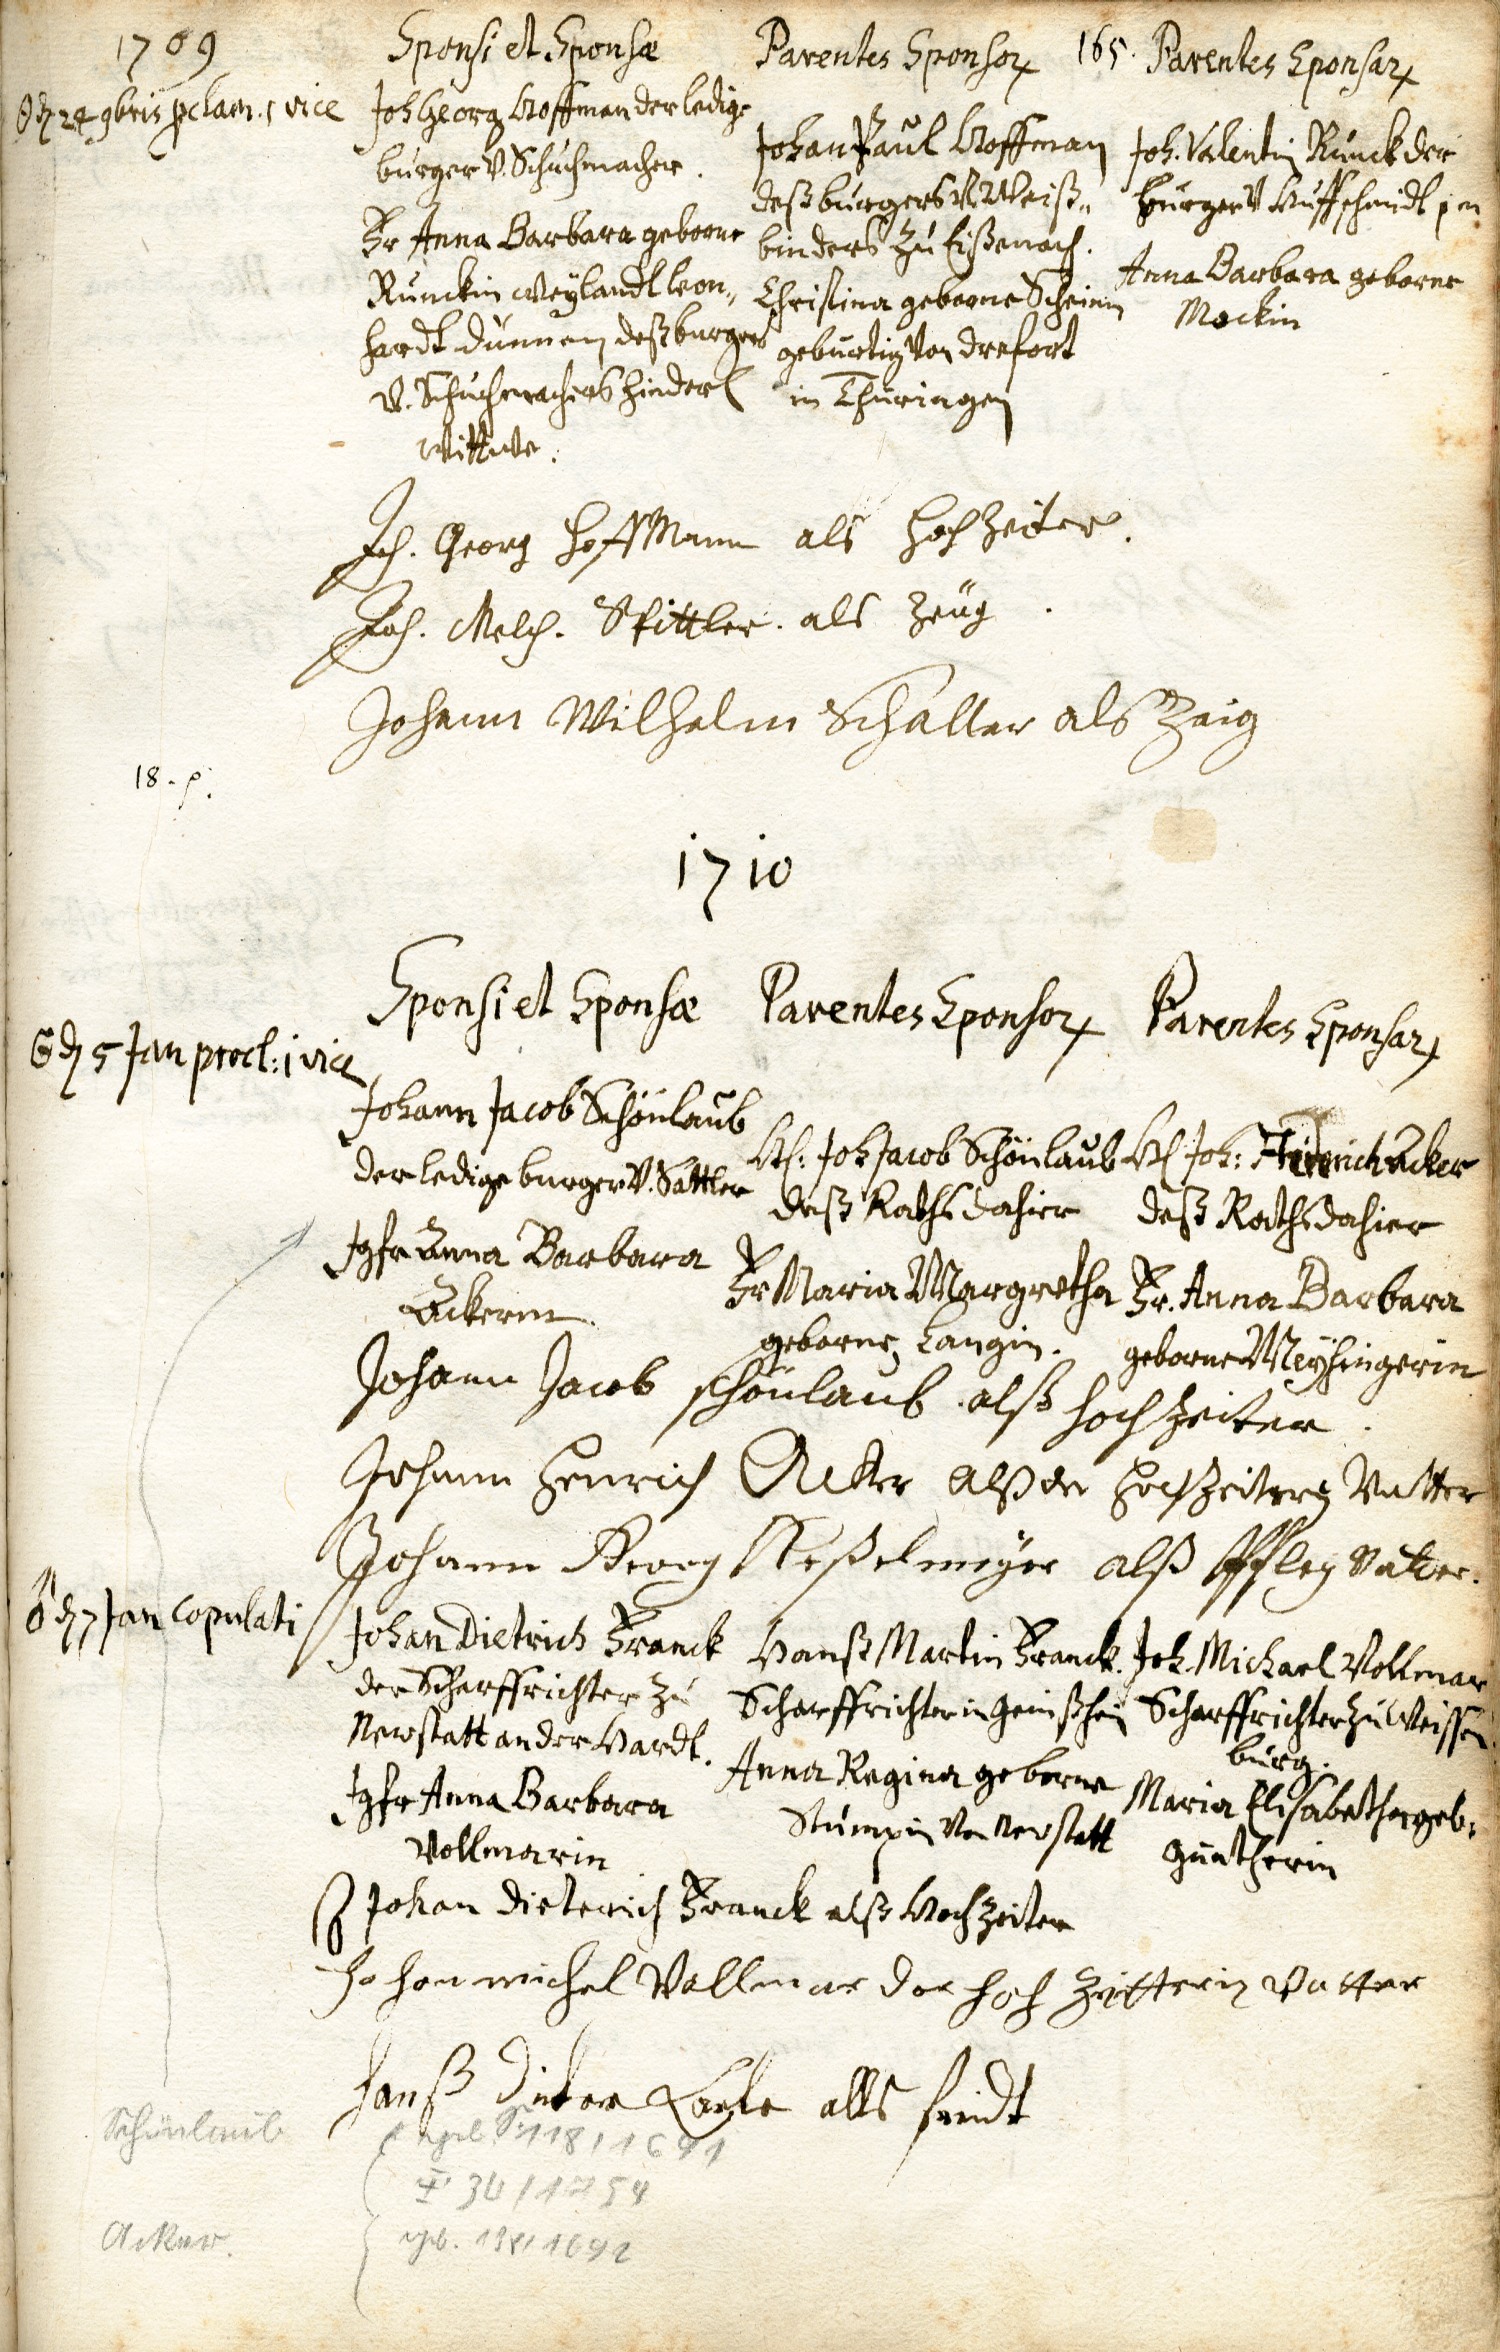 1709
Sponsi et Sponsæ
Parentes Sponsor
165.
Parentes Sponsar
24 9bris pclam. 1 vice
Joh Georg Hoffman der ledige
burger V. Schuchmacher.
Fr Anna Barbara geborne
Runckin weylandt Leon„
hardt dünnen deß burgers
V. Schuchmachers hinderl
Wittwe.
Johan Paul Hoffman
deß burgers V. Weiß„
binders zu Eißenach.
Christina geborne Scheinin
geburtig Von drefort
in Thüringen
Joh. Valentin Runck der
burger V Huffschmidt
Anna Barbara geborne
Mockin
Joh. Georg Hoffmann als Hochzeiter.
Joh. Melch. Spittler. als Zeüg.
Johann Wilhelm Schaller als Zeig
18. p.
1710
Sponsi et Sponsæ
Parentes Sponsor
Parentes Sponsar
5 Jan procl: 1 vice
Johann Jacob Schönlaub
der ledige burger V. Sattler
Jgfr Anna Barbara
Ackerin.
H: Joh Jacob Schönlaub
deß Raths dahier
Fr Maria Margretha
geborne Langin.
H Joh: Henrich Acker
deß Raths dahier
Fr. Anna Barbara
geborne Meysingerin
Johann Jacob schönlaub alß hochzeiter.
Johann Henrich Acker alß der Hochzeiterin Vatter
Johann Georg Keßelmeyer alß Pfleg Vatter.
7 Jan copulati
Johan Dietrich Franck
der Scharffrichter zu
Newstatt an der Hardt.
Jgfr Anna Barbara
Vollmarin
Hanß Martin Franck.
Scharffrichter in
Anna Regina geborne
Stumpin Von Newstatt
Joh. Michael Vollmar
Scharffrichter zu Weissen
burg.
Maria Elisabetha geb.
Guntherin
Johan Dieterich Franck alß Hochzeiter
Johan michel Vollmar der hoch Zeitterin Vatter
Hanß alls
Schönlaub
118 / 1691
36 / 1754
Acker.
1692